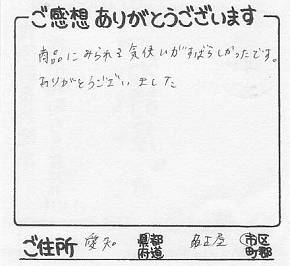 ご感想 ありがとうございます
商品にみられる気使いがすばらしかったです。
ありがとうございました
ご住所 愛知 県都府道 市区町郡